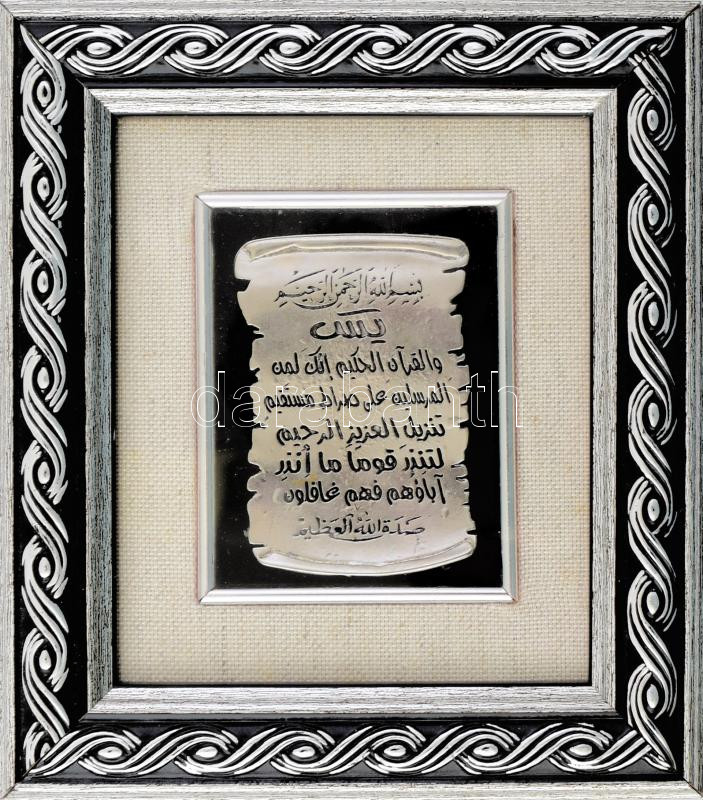 بسم الله الرحمن الرحيم
يس
والقرآن الحكيم انك لمن
المرسلين على صراط مستقيم
تنزيل العزيز الرحيم
لتنذر قوما ما أنذر
آباؤهم فهم غافلون
صدق الله العظيم
darabanth